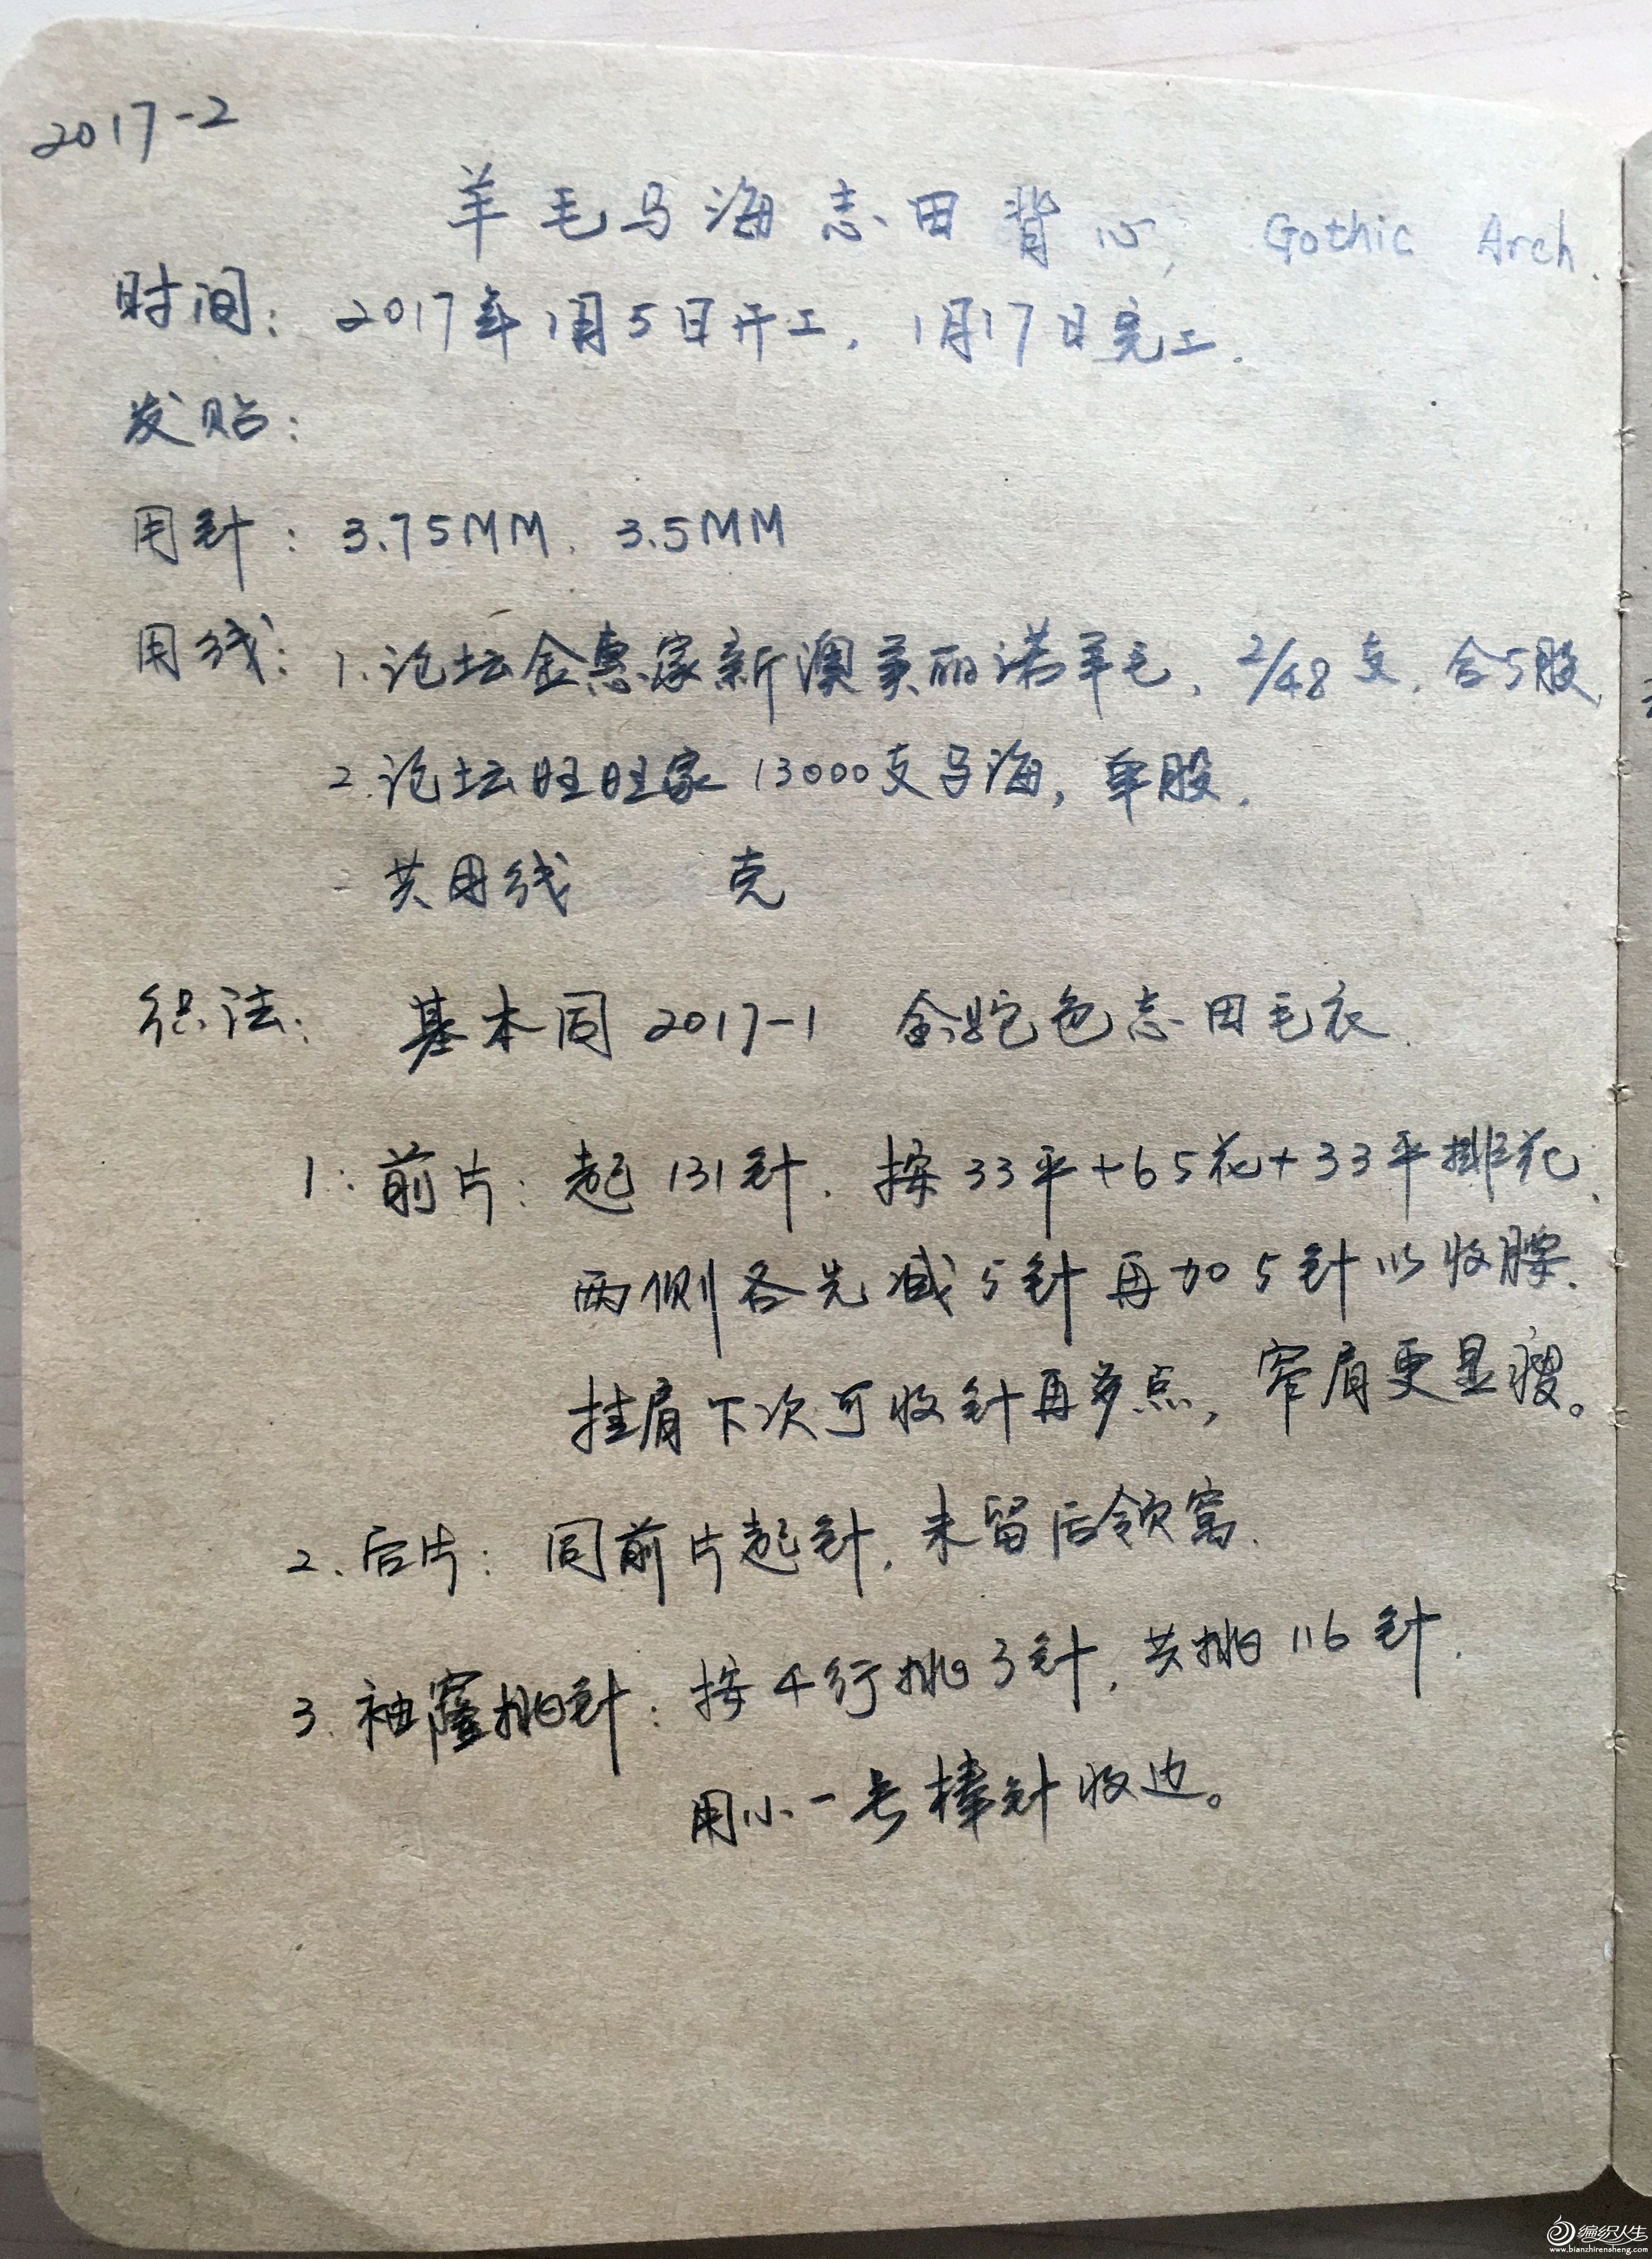 2017-2
羊毛马海志田背心 Gothic Arch.
时间: 2017年1月5日开工, 1月17日完工.
发贴:
用针: 3.75MM, 3.5MM
用线: 1.论坛金惠家新澳美丽诺羊毛, 2/48支, 合5股,
2.论坛旺旺家13000支马海, 单股.
共用线 克
织法: 基本同2017-1 金驼色志田毛衣.
1.前片: 起131针, 按33平+65花+33平排花、
两侧各先减5针再加5针以收腰.
挂肩下次可收针再多点, 窄肩更显瘦。
2.后片: 同前片起针, 未留后领窝.
3.袖窿挑针: 按4行挑3针, 共挑116针.
用小一号棒针收边。
编织人生
www.bianzhirensheng.com